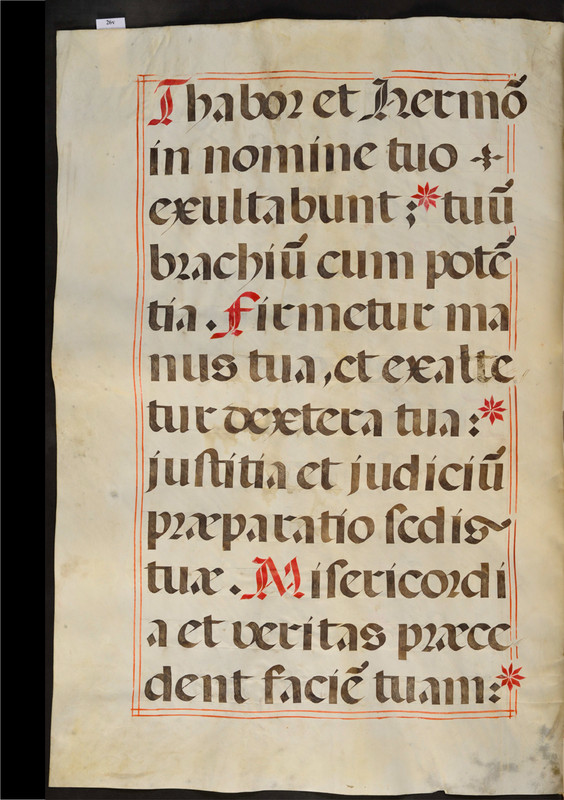 28v
Thabor et Hermõ
in nomine tuo +
exultabunt ;* tuū
brachiū cum potē
tia . Firmetur ma
nus tua , et exalte
tur dextera tua : *
juſtitia et judiciū
præparatio ſedis
tuæ . Miſericordi
a et veritas præce
dent faciē tuam : *